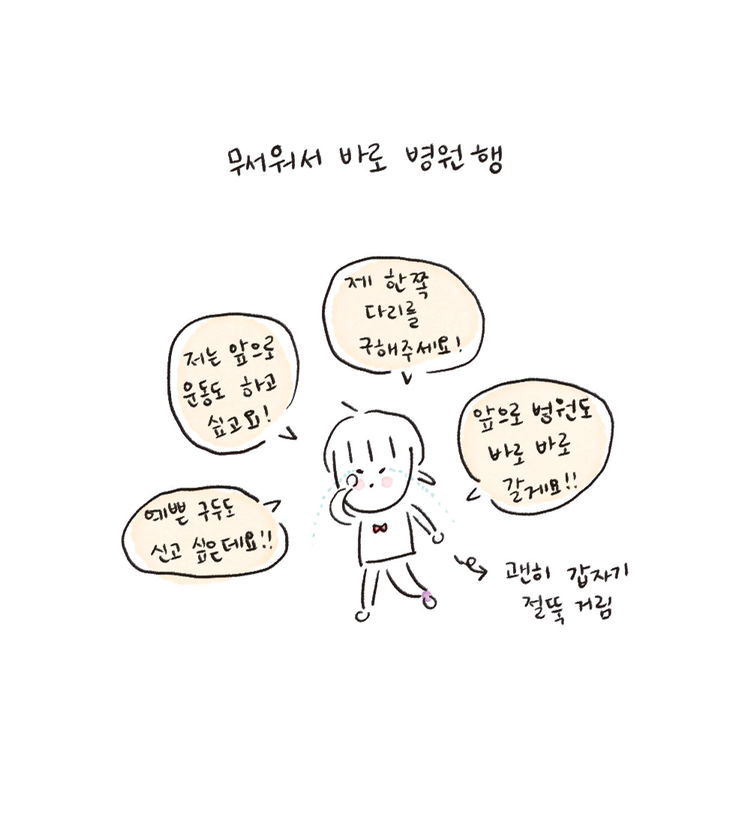 무서워서 바로 병원행
제 한쪽
다리를
구해주세요!
저는 앞으로
운동도 하고
싶고요!
앞으로 병원도
바로 바로
갈게요!!
예쁜 구두도
신고 싶은데요!!
괜히 갑자기
절뚝 거림